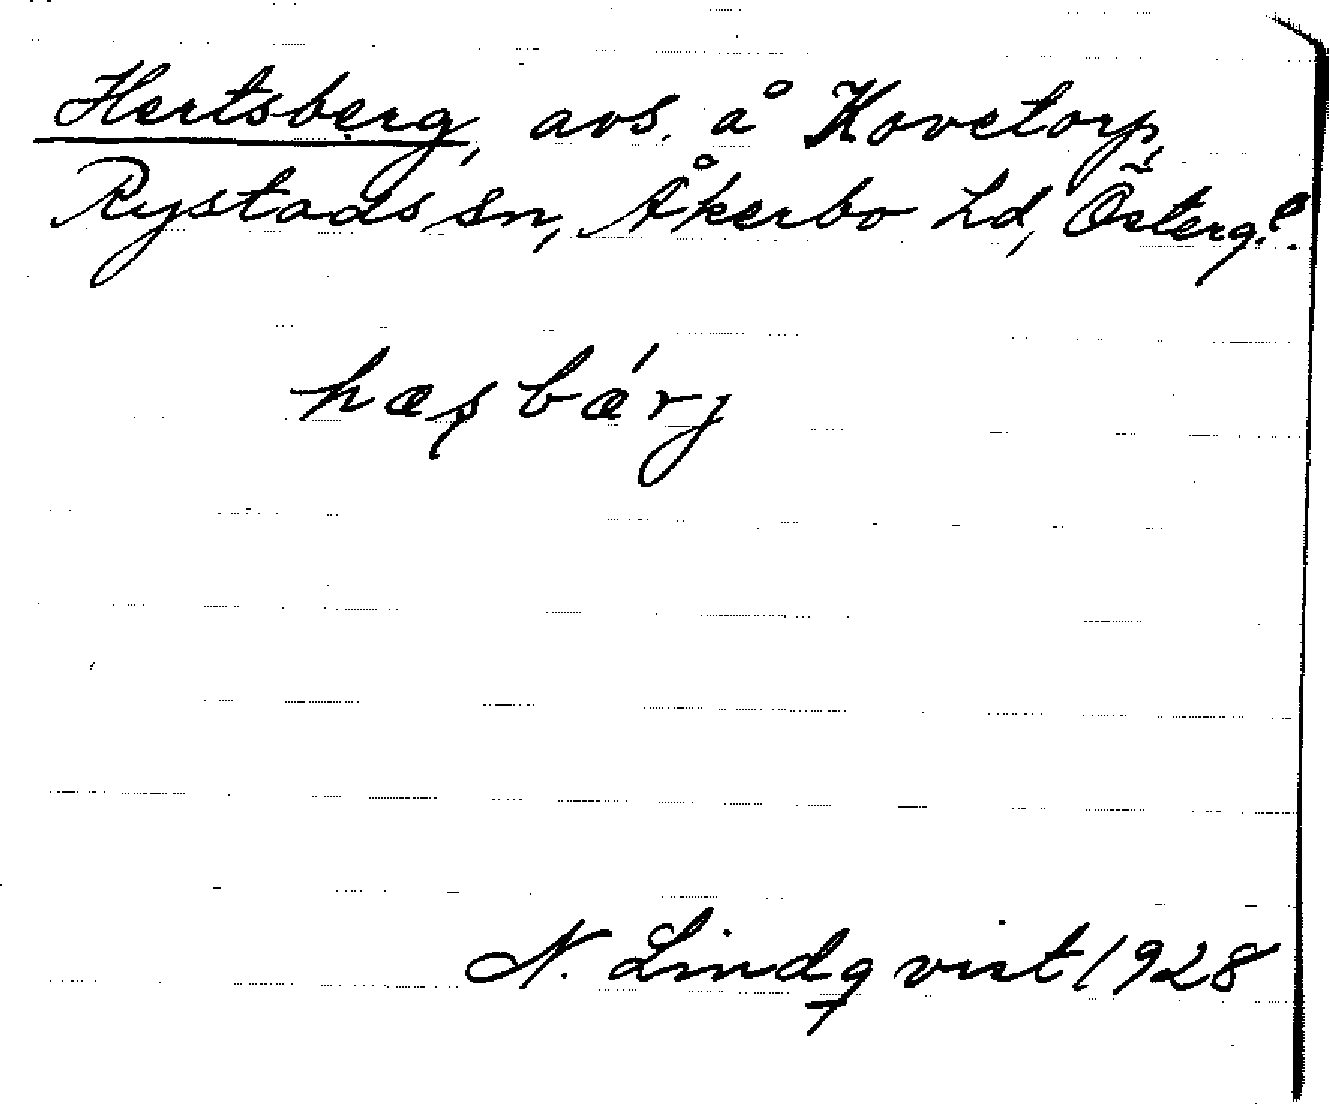 Hertsberg, avs. å Kovetorp,
Rystads sn, Åkerbo hd, Österg.l.
hæʂbǽrj
N. Lindqvist 1928